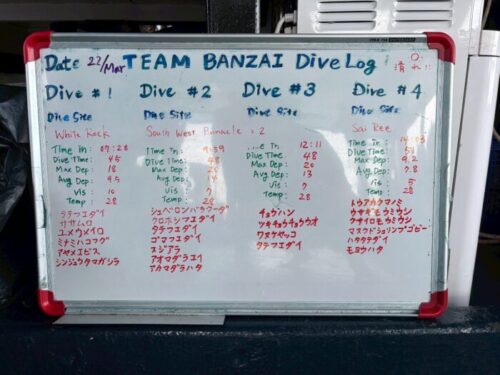 Date 22/Mar TEAM BANZAI Dive Log
Dive #1
Dive Site
White Rock
Time In: 07:28
Dive Time: 45
Max Dep: 18
Avg Dep: 9.5
Vis: 10
Temp: 28
タテフエダイ
ササムロ
ユメウメイロ
ミナミハコフグ
アヤメエビス
シンジュタマガシラ
Dive #2
Dive Site
South West Pinnacle
Time In:
Dive Time: 48
Max Dep: 26
Avg Dep: 14
Vis: 7
Temp: 28
シェベロンバラクーダ
クロホシフエダイ
タテフエダイ
ゴマフエダイ
エジアラ
アオマダラエイ
アカマダラハタ
Dive #3
Dive Site
: 2
In: 12:11
Dive Time: 48
Max Dep: 20
Avg Dep: 13
Vis: 7
Temp: 28
チョウハン
ツキチョウチョウウオ
ワヌケヤッコ
タテフエダイ
Dive #4
Dive Site
Sai Ree
Time In:
Dive Time: 54
Max Dep: 9.2
Avg Dep: 7.8
Vis: 5
Temp: 28
トウアカクマノミ
ウサギモウミウシ
クサイロモウミウシ
マスクドシュリンプゴビー
ハタタテダイ
モヨウハタ